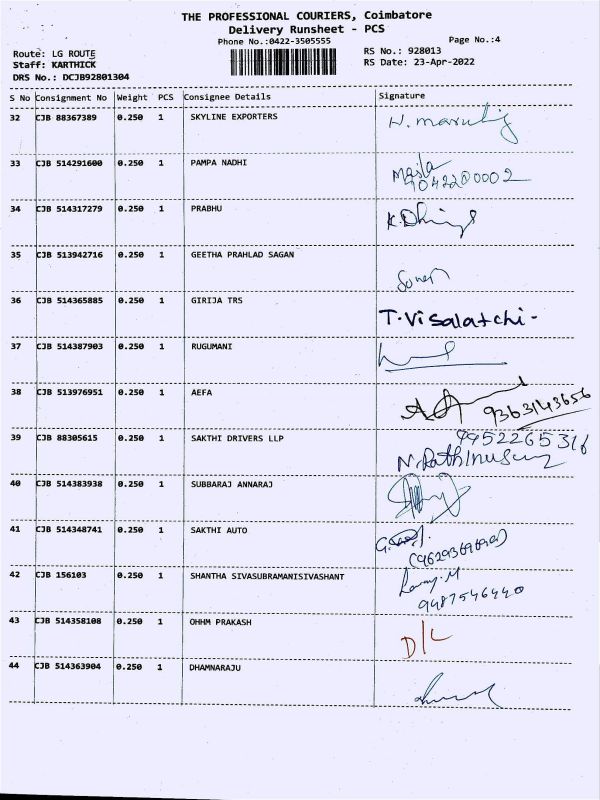 THE PROFESSIONAL COURIERS, Coimbatore
Delivery Runsheet - PCS
Phone No.:0422-3505555
Page No.:4
Route: LG ROUTE
RS No.: 928013
Staff: KARTHICK
RS Date: 23-Apr-2022
DRS No.: DCJB92801304
S No Consignment No Weight PCS Consignee Details Signature
32 CJB 88367389 0.250 1 SKYLINE EXPORTERS
33 CJB 514291600 0.250 1 PAMPA NADHI
34 CJB 514317279 0.250 1 PRABHU
35 CJB 513942716 0.250 1 GEETHA PRAHLAD SAGAN
36 CJB 514365885 0.250 1 GIRIJA TRS T.Visalatchi-
37 CJB 514387903 0.250 1 RUGUMANI
38 CJB 513976951 0.250 1 AEFA 9363143656
39 CJB 88305615 0.250 1 SAKTHI DRIVERS LLP
40 CJB 514383938 0.250 1 SUBBARAJ ANNARAJ
41 CJB 514348741 0.250 1 SAKTHI AUTO
42 CJB 156103 0.250 1 SHANTHA SIVASUBRAMANISIVASHANT
9487546440
43 CJB 514358108 0.250 1 OHHM PRAKASH D/L
44 CJB 514363904 0.250 1 DHAMNARAJU